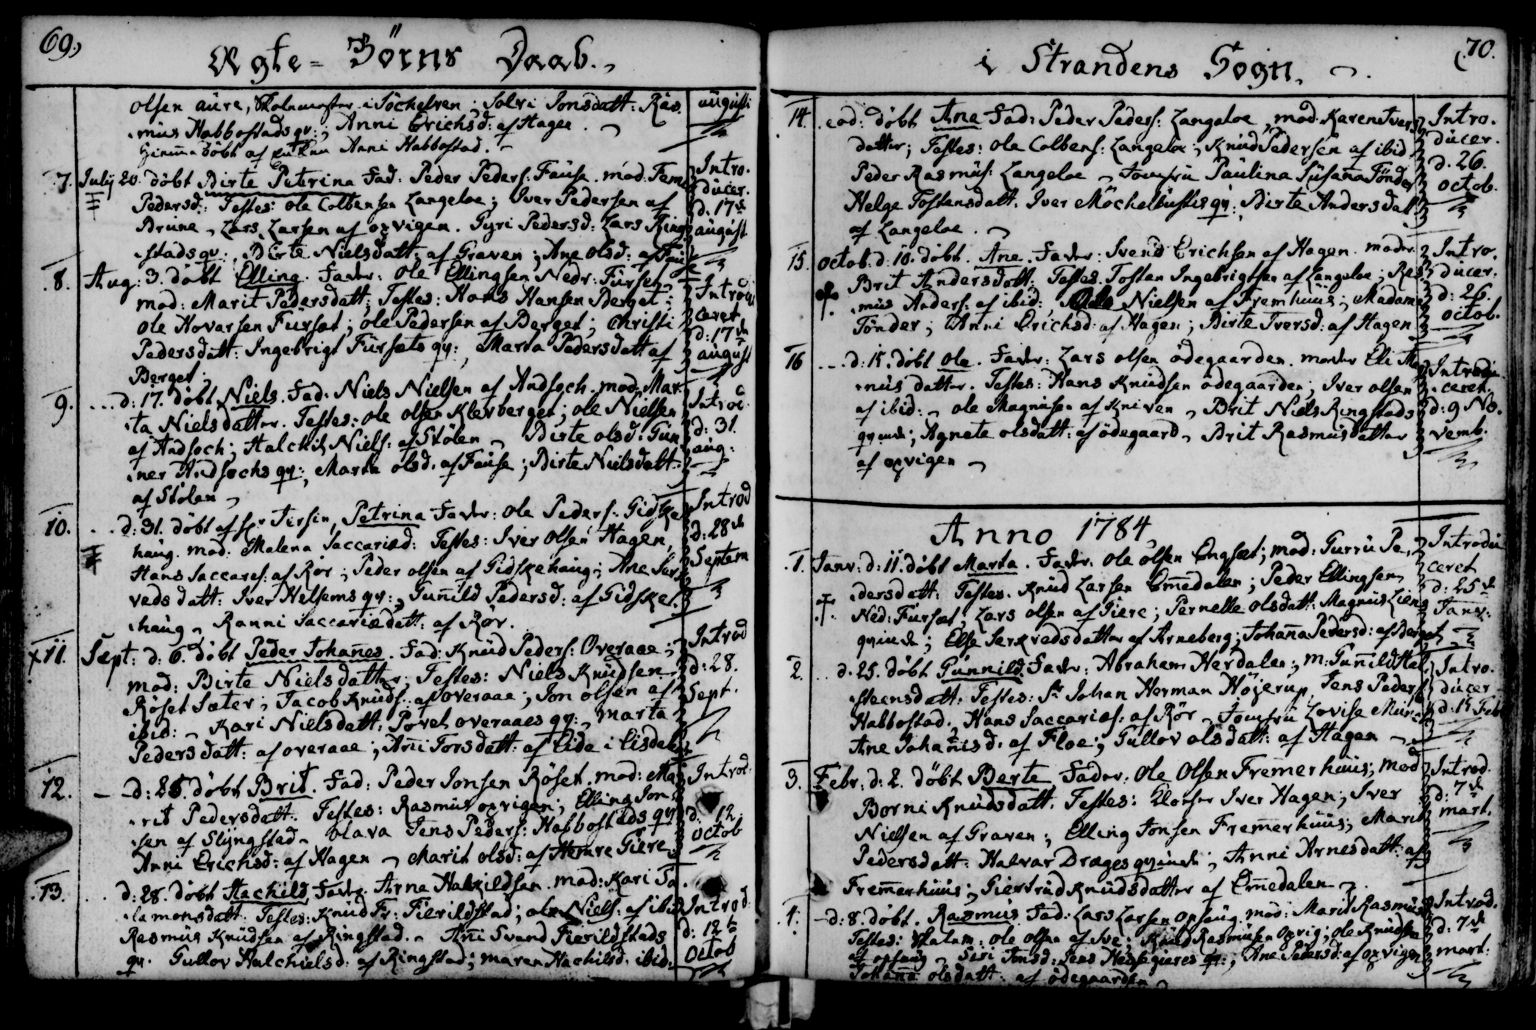 69.)
Ægte= Börns Daab.
olsen aure, Skolemester i Söchelven; Solvi Jonsdatt: Ras-
-mus Habbostads qv:, Anni Erichsd: af Hagen.
hiemme döbt af Anni Habbostad.
augusti
7. July 20. döbt Birte Petrina Fad: Peder Peders: Fause. mod: Fem
Pedersd: Testes: Ole Colbensen Langeloe; Iver Pedersen af
Brune, Lars Larsen af opvigen. Gyri Pedersd: Lars Ring
stads qv:, Birte Nielsdatt: af Graven; Ane Olsd: af Fause
Intro-
ducer.
d. 17de
august
8. Aug: 3. döbt Elling. Fader: Ole Ellingsen Nedr. Fürset
mod: Marit Pedersdatt; Testes: Hans Hansen Berget;
Ole Hovarsen Fürset; ole Pedersen af Berget; Christi
Pedersdatt: Ingebrigt Fürsets qv:, Marta Pedersdatt af
Berget.
Introdu
ceret
d: 17de
august
9. d: 17. döbt Niels. Fad. Niels Nielsen af Andsoch. mod: Mar-
ta Nielsdatter. Testes: ole olsen Kleberget; ole Nielsen
af Andsoch; Halchild Niels: af Stölen, Birte olsd: Gun
ner Andsochs qv:, Marta olsd. af Fause; Birte Nielsdatt:
af Stölen
Introd.
d: 31.
aug:
10. d: 31. döbt af Hr. Tirsin, Petrina Fader: Ole Peders: Gidske
haug. mod: Malena Saccarisd: Testes: Iver olsen Hagen,
Hans Saccares: af Rör; Peder olsen af Gidskehaug; Ane Sere
veds datt: Iver Welsems qv:, Gunild Pedersd: af Gidske-
haug, Ranni Saccarisdatt: af Rör.
Introd
d: 28de
Septem
x11. Sept: d: 6. döbt Peder Johanes. Fad: Knud Peders: Overaae;
mod: Birte Nielsdatter; Testes: Niels Knudsen,
Röset Sæter; Jacob Knuds: af overaae; Jon olsen af
ibid: Kari Nielsdatt: Povel overaaes qv:, marta
Pedersdatt: af overaae; Ani Torsdatt: af Lide i Lisdal
Introd
d: 28.
Sept.
12. d: 26. döbt Brit. Fad: Peder Jonsen Röset. mod: Ma-
rit Pedersdatt. Testes: Rasmus opvigen; Elling Jon-
sen af Slyngstad, Olava Jens Peders: Habbostads qv:
Anni Erichsd: af Hagen, Marit olsd: af Giere
Introd.
d. 12
octob
13. d: 28. döbt Hachild. Fader Arne Halkildsen. mod: Kari Sa-
lamonsdatt. Testes: Knud Fr: Fierildstad; ole Niels: af ibid
Rasmus Knudsen af Ringstad. Ani Svend Fierildstads
qv. Gullov Halchielsd: af Ringstad; maren Hachilsd: ibid:
Introd:
d: 12te
octob
i Strandens Sogn.
(70.
14. eod: döbt Ane Fad: Peder Peders: Langeloe, mod: Karen Ivers
datter; Testes: Ole Colbens: Langeloe; Knud Pedersen af ibid
Peder Rasmus: Langeloe, Jomfru Paulina Susana Tönder,
Helge Tostensdatt: Iver Möchelbustes qv:, Birte Andersdat
af Langeloe.
Intro.
ducer.
d. 26.
octob.
15. octob. d. 10. döbt. Ane. Fader: Svend Erichsen af Hagen moder
Brit Andersdatt: Testes. Tosten Ingebrigtsen af Langeloe; Ras-
mus Anders: af ibid; Ole Nielsen af Fremhuus; Madame
Tönder; Anni Erichsd: af Hagen; Birte Iversd: af Hagen
Intro.
ducer.
d: 26.
octob.
16 d: 15. döbt Ole. Fader: Lars olsen ödegaarden. moder Eli Mag
nus datter. Testes: Hans Knudsen ödegaarden; Iver olsen
af ibid:, ole Magnusen af Kniven, Brit Niels Ringstads
qvinde; Agnete olsdatt: af ödegaard, Brit Rasmusdatter
af opvigen
Introdu-
ceret.
d: 9 No-
vemb.
Anno 1784.
1. Janr: d: 11. döbt Marta. Fader. Ole olsen Engset; mod: Gurru Pe-
dersdatt: Testes. Knud Larsen Emedalen; Peder Ellingsen
Ned: Fürset, Lars olsen af Giere; Pernelle olsdatt: Magnus Liens
qvinde; Else Serkvedsdatter af Arneberg; Johana Pedersd: af Berget
Introdu
ceret
d: 25de
Janr:
2. d. 25. döbt Gunnild Fader: Abraham Herdalen; m: Gunild Hel
steensdatt: Testes: Sr Johan Herman Höjerup, Jens Peders:
Habbostad. Hans Saccarias: af Rör, Jomfru Lovise Murch
Ane Johanisd. af Floe; Gullov olsdatt: af Hagen
Intro-
ducer
d: 15 Feb
3. Febr: d: 2. döbt Berte Fader. Ole Olsen Fremerhuus; mod
Borni Knudsdatt. Testes: Iver Hagen; Iver
Nielsen af Graven; Elling Jonsen Fremerhuus; Marit
Pedersdatt: Halvar Drages qvinde; Anni Arnesdatt: af
Fremerhuus; Giertrud Knudsdatter af Emedalen.
Introd.
d: 7de
mart.
4. d: 8. döbt. Rasmus Fad: Lars Larsen opsaug. mod: Marit Rasmus
Testes: ole olsen af Sve; Knud Rasmusen opvig; ole Knudsen
af opsaug, Siri Jens Hessegieres qv:, Ane Pedersd: af opvigen
Johana olsdatt: af ödegaarden
Introd.
d: 7de
mart: